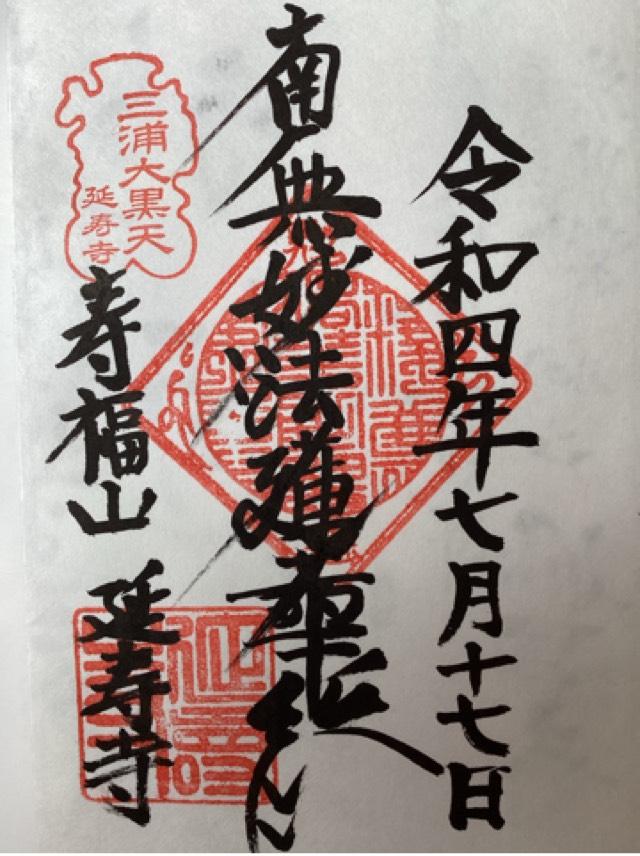 令和四年七月十七日
南無妙法蓮華経
三浦大黒天
延寿寺
寿福山 延寿寺